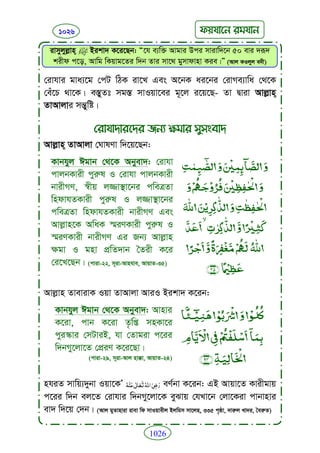 ১০২৬
ফয়যানে রমযান
রাসুলুল্লাহ্ ﷺ ইরশাদ করেছেন: “যে ব্যক্তি আমার উপর সারাদিনে ৫০ বার দরূদ
শরীফ পড়ে, আমি কিয়ামতের দিন তার সাথে মুসাফাহা করব।” (আল কওলুল বদী)
রোযার মাধ্যমে পেট ঠিক রাখে এবং অনেক ধরনের রোগব্যাধি থেকে
বেঁচে থাকে। বস্তুতঃ সমস্ত সাওয়াবের মূলে রয়েছে- তা দ্বারা আল্লাহ্
তাআলার সন্তুষ্টি।
রোযাদারদের জন্য ক্ষমার সুসংবাদ
আল্লাহ্ তাআলা ঘোষণা দিয়েছেন:
কানযুল ঈমান থেকে অনুবাদ: রোযা
পালনকারী পুরুষ ও রোযা পালনকারী
নারীগণ, স্বীয় লজ্জাস্থানের পবিত্রতা
হিফাযতকারী পুরুষ ও লজ্জাস্থানের
পবিত্রতা হিফাযতকারী নারীগণ এবং
আল্লাহকে অধিক স্মরণকারী পুরুষ ও
স্মরণকারী নারীগণ এর জন্য আল্লাহ
ক্ষমা ও মহা প্রতিদান তৈরী করে
রেখেছেন। (পারা-২২, সূরা-আহযাব, আয়াত-৩৫)
وَالصَّآئِمِيْنَ وَالصّٰٓئِمٰتِ
وَالْحٰفِظِيْنَ فُرُوْجَهُمْ وَ
الْحٰفِظٰتِ وَالذّٰكِرِيْنَ اللّٰهَ
كَثِيْرًا وَّالذّٰكِرٰتِ ۙ اَعَدَّ
اللّٰهُ لَهُمْ مَّغْفِرَةً وَّاَجْرًا
عَظِيْمًا ﴿۳۵﴾
আল্লাহ তাবারাক ওয়া তাআলা আরও ইরশাদ করেন:
কানযুল ঈমান থেকে অনুবাদ: আহার
করো, পান করো তৃপ্তি সহকারে
পুরস্কার সেটারই, যা তোমরা পরের
দিনগুলোতে প্রেরণ করেছো।
(পারা-২৯, সূরা-আল হাক্কা, আয়াত-২৪)
كُلُوْا وَاشْرَبُوْا هَنِيْٓـًٔۢا
بِمَآ اَسْلَفْتُمْ فِي الْاَيَّامِ
الْخَالِيَةِ ﴿۲۴﴾
হযরত সায়্যিদুনা ওয়াকে’ رَحْمَةُ اللّٰهِ تَعَالٰى عَلَيْهِ বর্ণনা করেন: এই আয়াতে কারীমায়
পরের দিন বলতে রোযার দিনগুলোকে বুঝায় যেখানে লোকেরা পানাহার
বাদ দিয়ে দেন।
1026